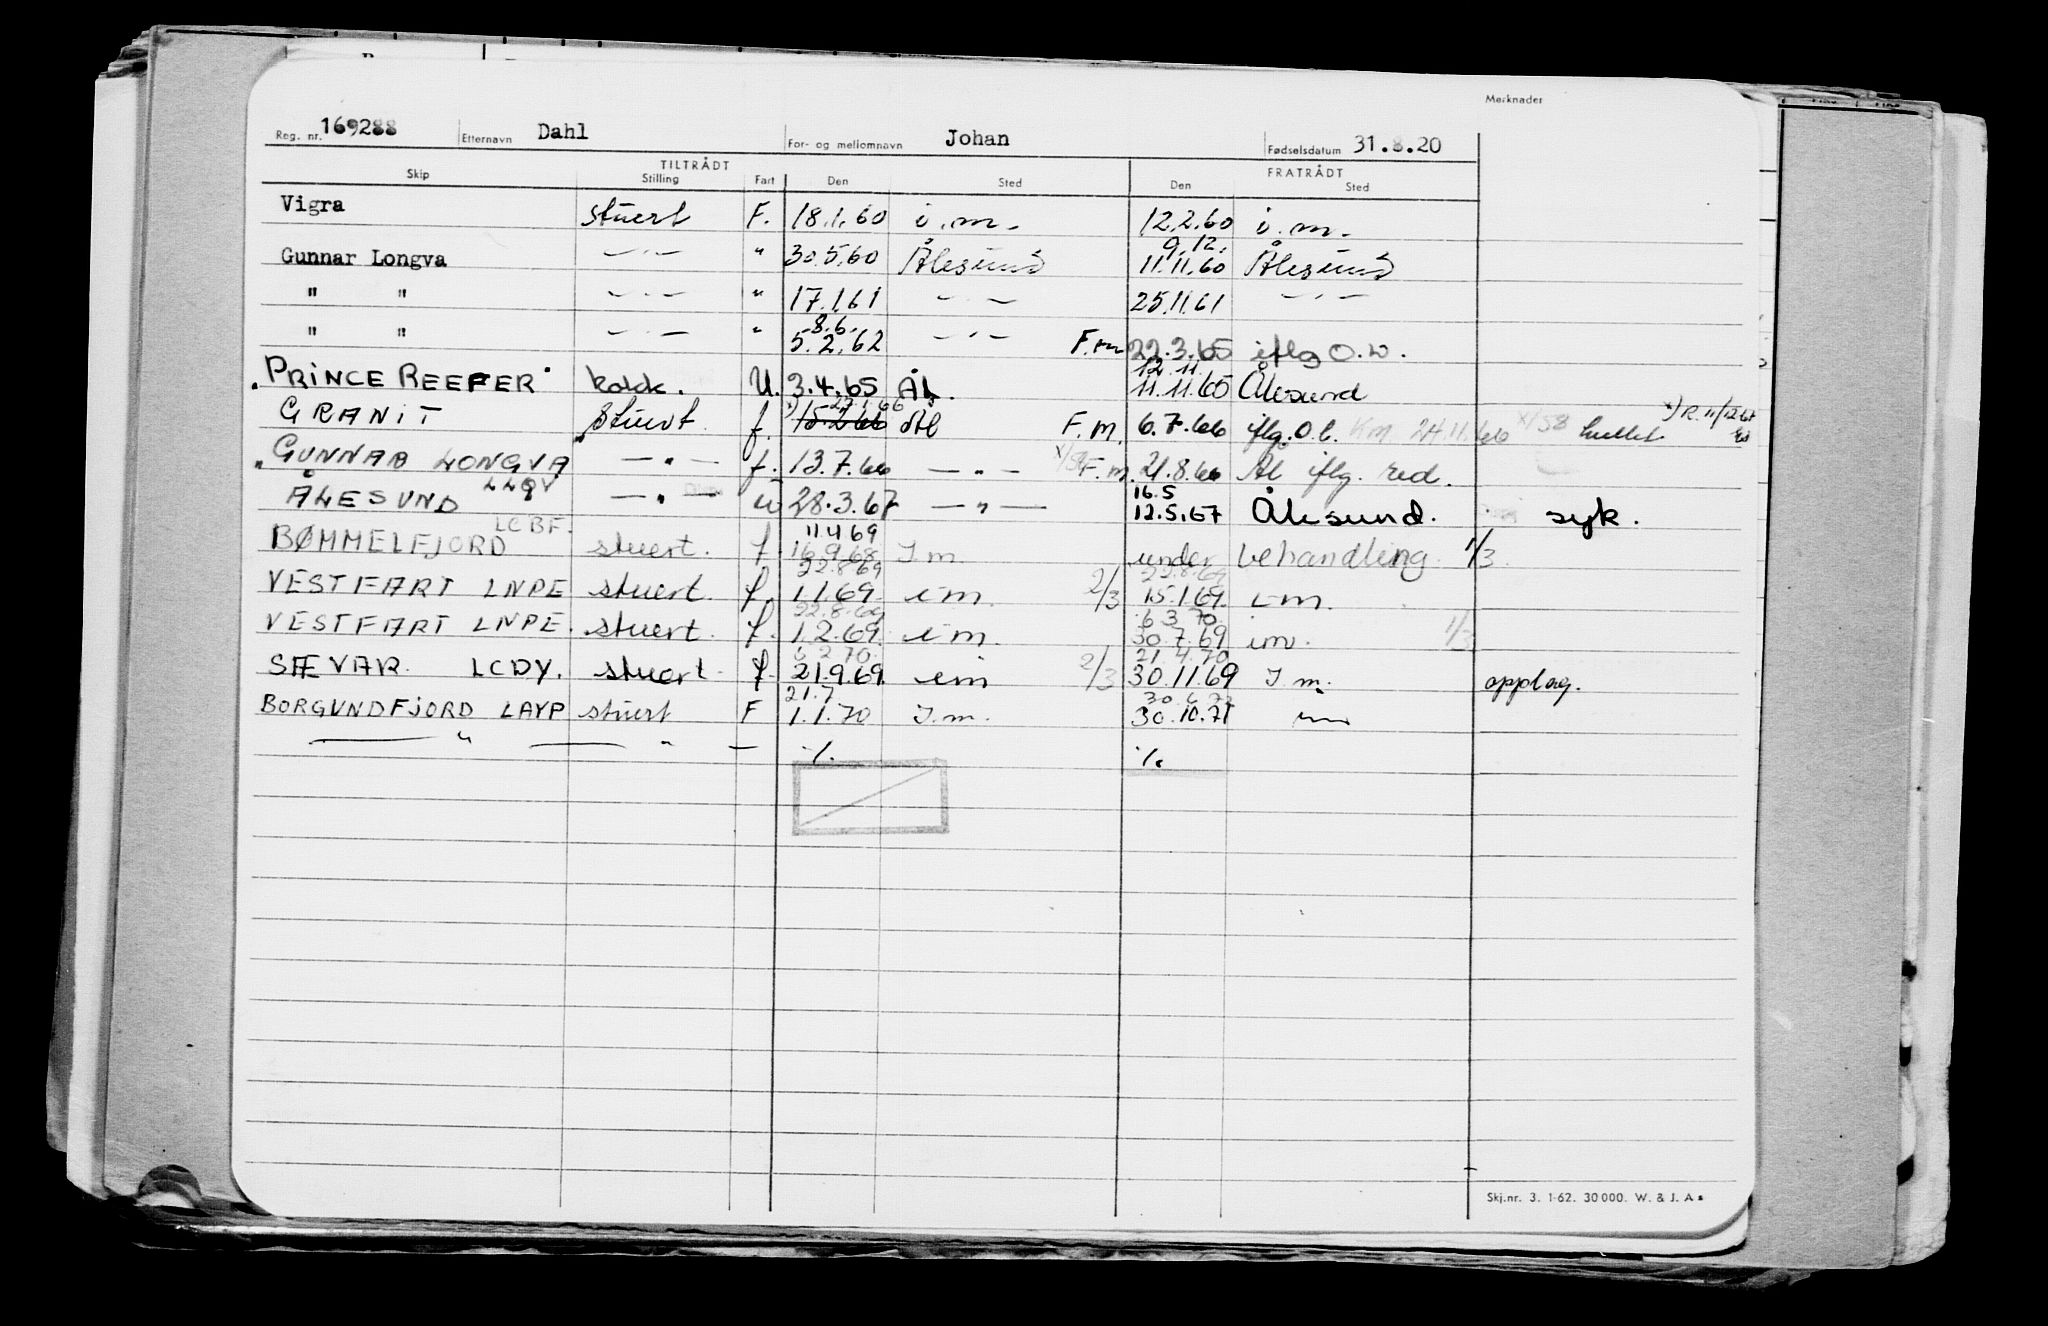 Merknader
Reg. nr. 169288 Etternavn Dahl For- og mellomnavn Johan Fødselsdatum 31.8.20
TILTRÅDT FRATRÅDT
Skip Stilling Fart Den Sted Den Sted
Vigra stuert F. 18.1.60 i.m. 12.2.60 i.m.
9.12.
Gunnar Longva —"— " 30.5.60 Ålesund 11.11.60 Ålesund
" " —"— " 17.1.61 —"— 25.11.61 —"—
8.6.
" " —"— " 5.2.62 —"— F.m 22.3.65 iflg O.w.
12.11.
"PRINCE REEFER" kokk. U. 3.4.65 Ål. 11.11.65 Ålesund
x) 27.1.66 x) R. 11/12 67
GRANIT Stuert f. 15.2.66 Ål F.M. 6.7.66 iflg. O.l. KM 24.11.66 x/58 hullet
"GUNNAR LONGVA" —"— f. 13.7.66 —"— x/58 F.m. 21.8.66 Ål iflg. red.
16.5
ÅLESUND LLQV —"— u 28.3.67 —"— 12.5.67 Ålesund. syk.
LCBF. 11.4.69
BØMMELFJORD stuert. f. 16.9.68 I.m. under behandling 1/3.
22.8.69 22.8.69
VESTFART LNPE stuert. f. 1.1.69. im. 2/3 15.1.69. im.
22.8.69 6 3 70.
VESTFART LNPE. stuert. f. 1.2.69. im. 30.7.69 im. 1/3
6 2 70. 21.4.70
SÆVAR. LCDY. stuert. f. 21.9.69. im 2/3 30.11.69 I.m. opplag.
21.7. 30.6.72
BORGUNDFJORD LAYP stuert F 1.1.70 I.m. 30.10.71 im
—"— —"— — ·/. ·/.
Skj.nr. 3. 1-62. 30 000. W. & J. A s